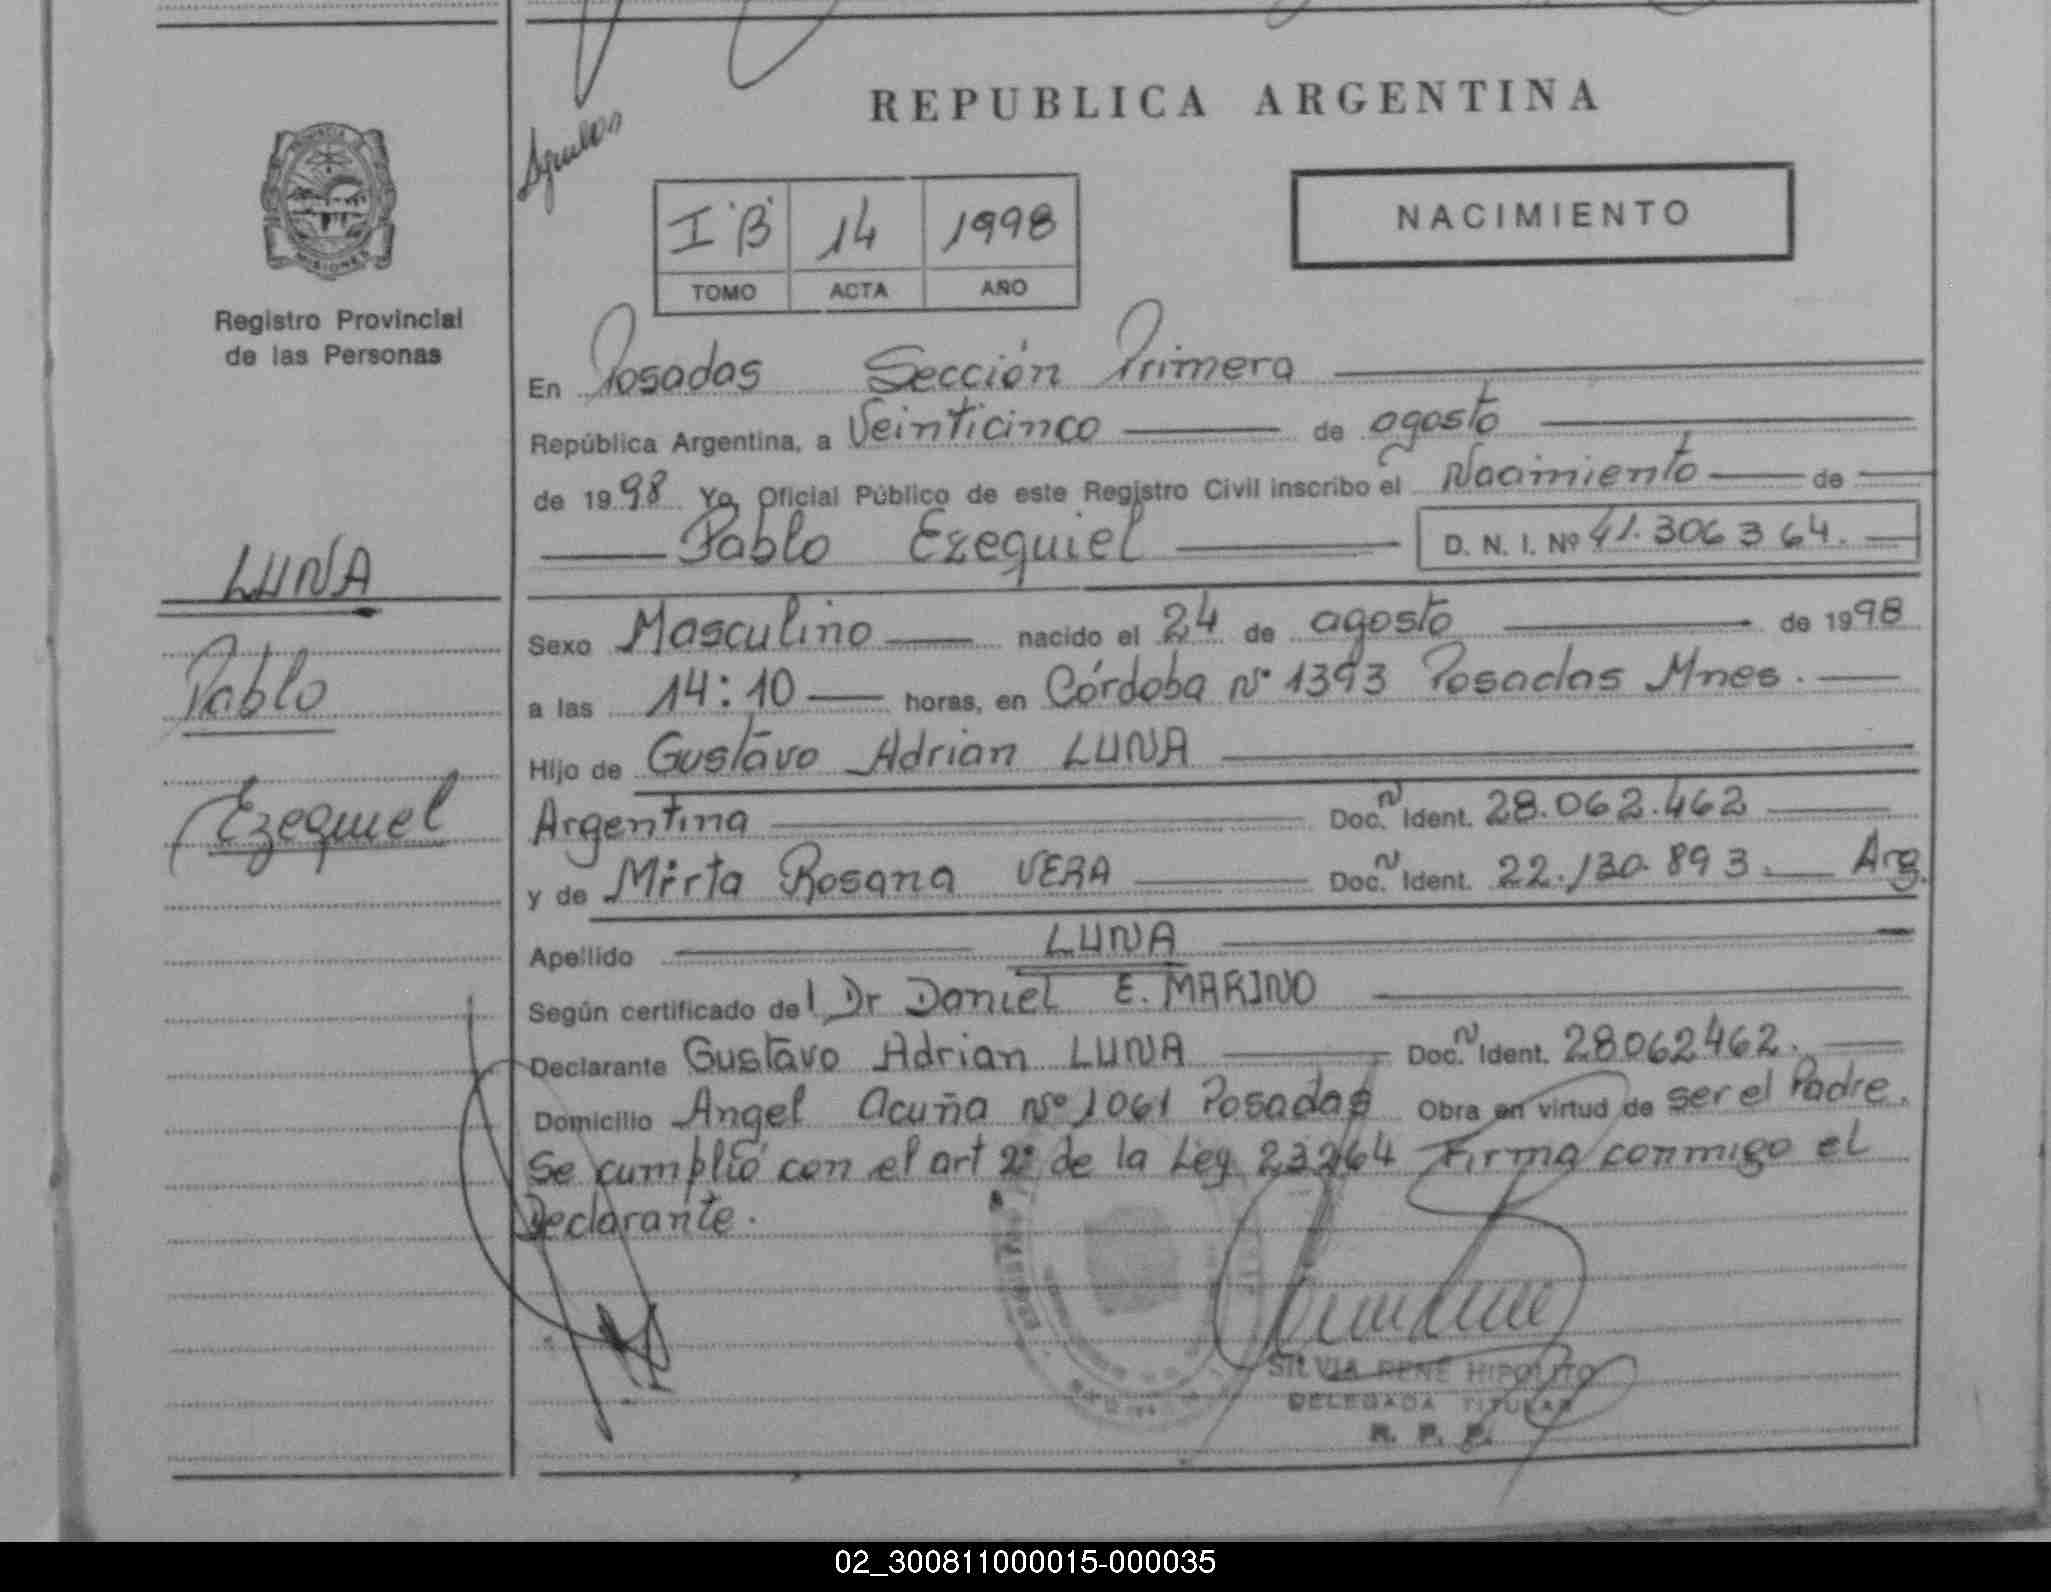 REPUBLICA ARGENTINA
I "B" 14 1998
TOMO ACTA AÑO
NACIMIENTO
MISIONES
Registro Provincial
de las Personas
En Posadas Sección Primera
República Argentina, a Veinticinco de agosto
de 1998 Yo, Oficial Público de este Registro Civil inscribo el Nacimiento de
Pablo Ezequiel D. N. I. Nº 41.306364.
LUNA
Pablo
Ezequiel
Sexo Masculino nacido el 24 de agosto de 1998
a las 14:10 horas, en Córdoba Nº 1393 Posadas Mnes.
Hijo de Gustavo Adrian LUNA
Argentina Doc. Ident. 28.062.462
y de Mirta Rosana VERA Doc. Ident. 22.130.893 Arg.
Apellido LUNA
Según certificado del Dr Daniel E. MARINO
Declarante Gustavo Adrian LUNA Doc. Ident. 28062462.
Domicilio Angel Acuña Nº 1061 Posadas Obra en virtud de ser el Padre.
Se cumplió con el art 2º de la Ley 23264 Firma conmigo el
Declarante.
SILVIA RENÉ HIPOLITO
DELEGADA TITULAR
R. P. P.
02_300811000015-000035